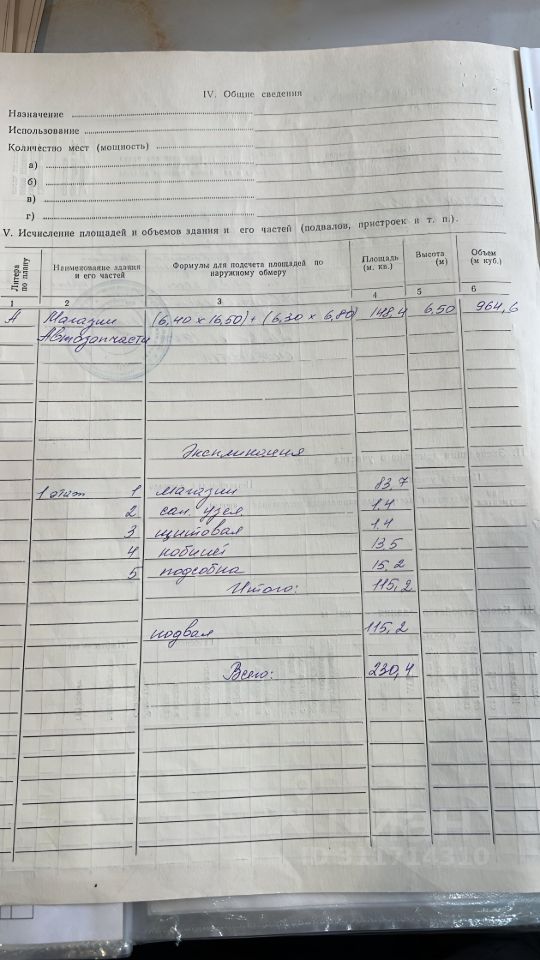 IV. Общие сведения
Назначение
Использование
Количество мест (мощность)
а)
б)
в)
г)
V. Исчисление площадей и объемов здания и его частей (подвалов, пристроек и т. п.).
Литера по плану Наименование здания и его частей Формулы для подсчета площадей по наружному обмеру Площадь (м. кв.) Высота (м) Объем (м куб.)
1 2 3 4 5 6
А Магазин (6,40 x 16,50) + (6,30 x 6,80) 148,4 6,50 964,6
Автозапчасти
Экспликация
1 этаж 1 магазин 83,7
2 сан. узел 1,4
3 щитовая 1,4
4 кобинет 13,5
5 подсобка 15,2
Итого: 115,2
подвал 115,2
Всего: 230,4
ID 311714310